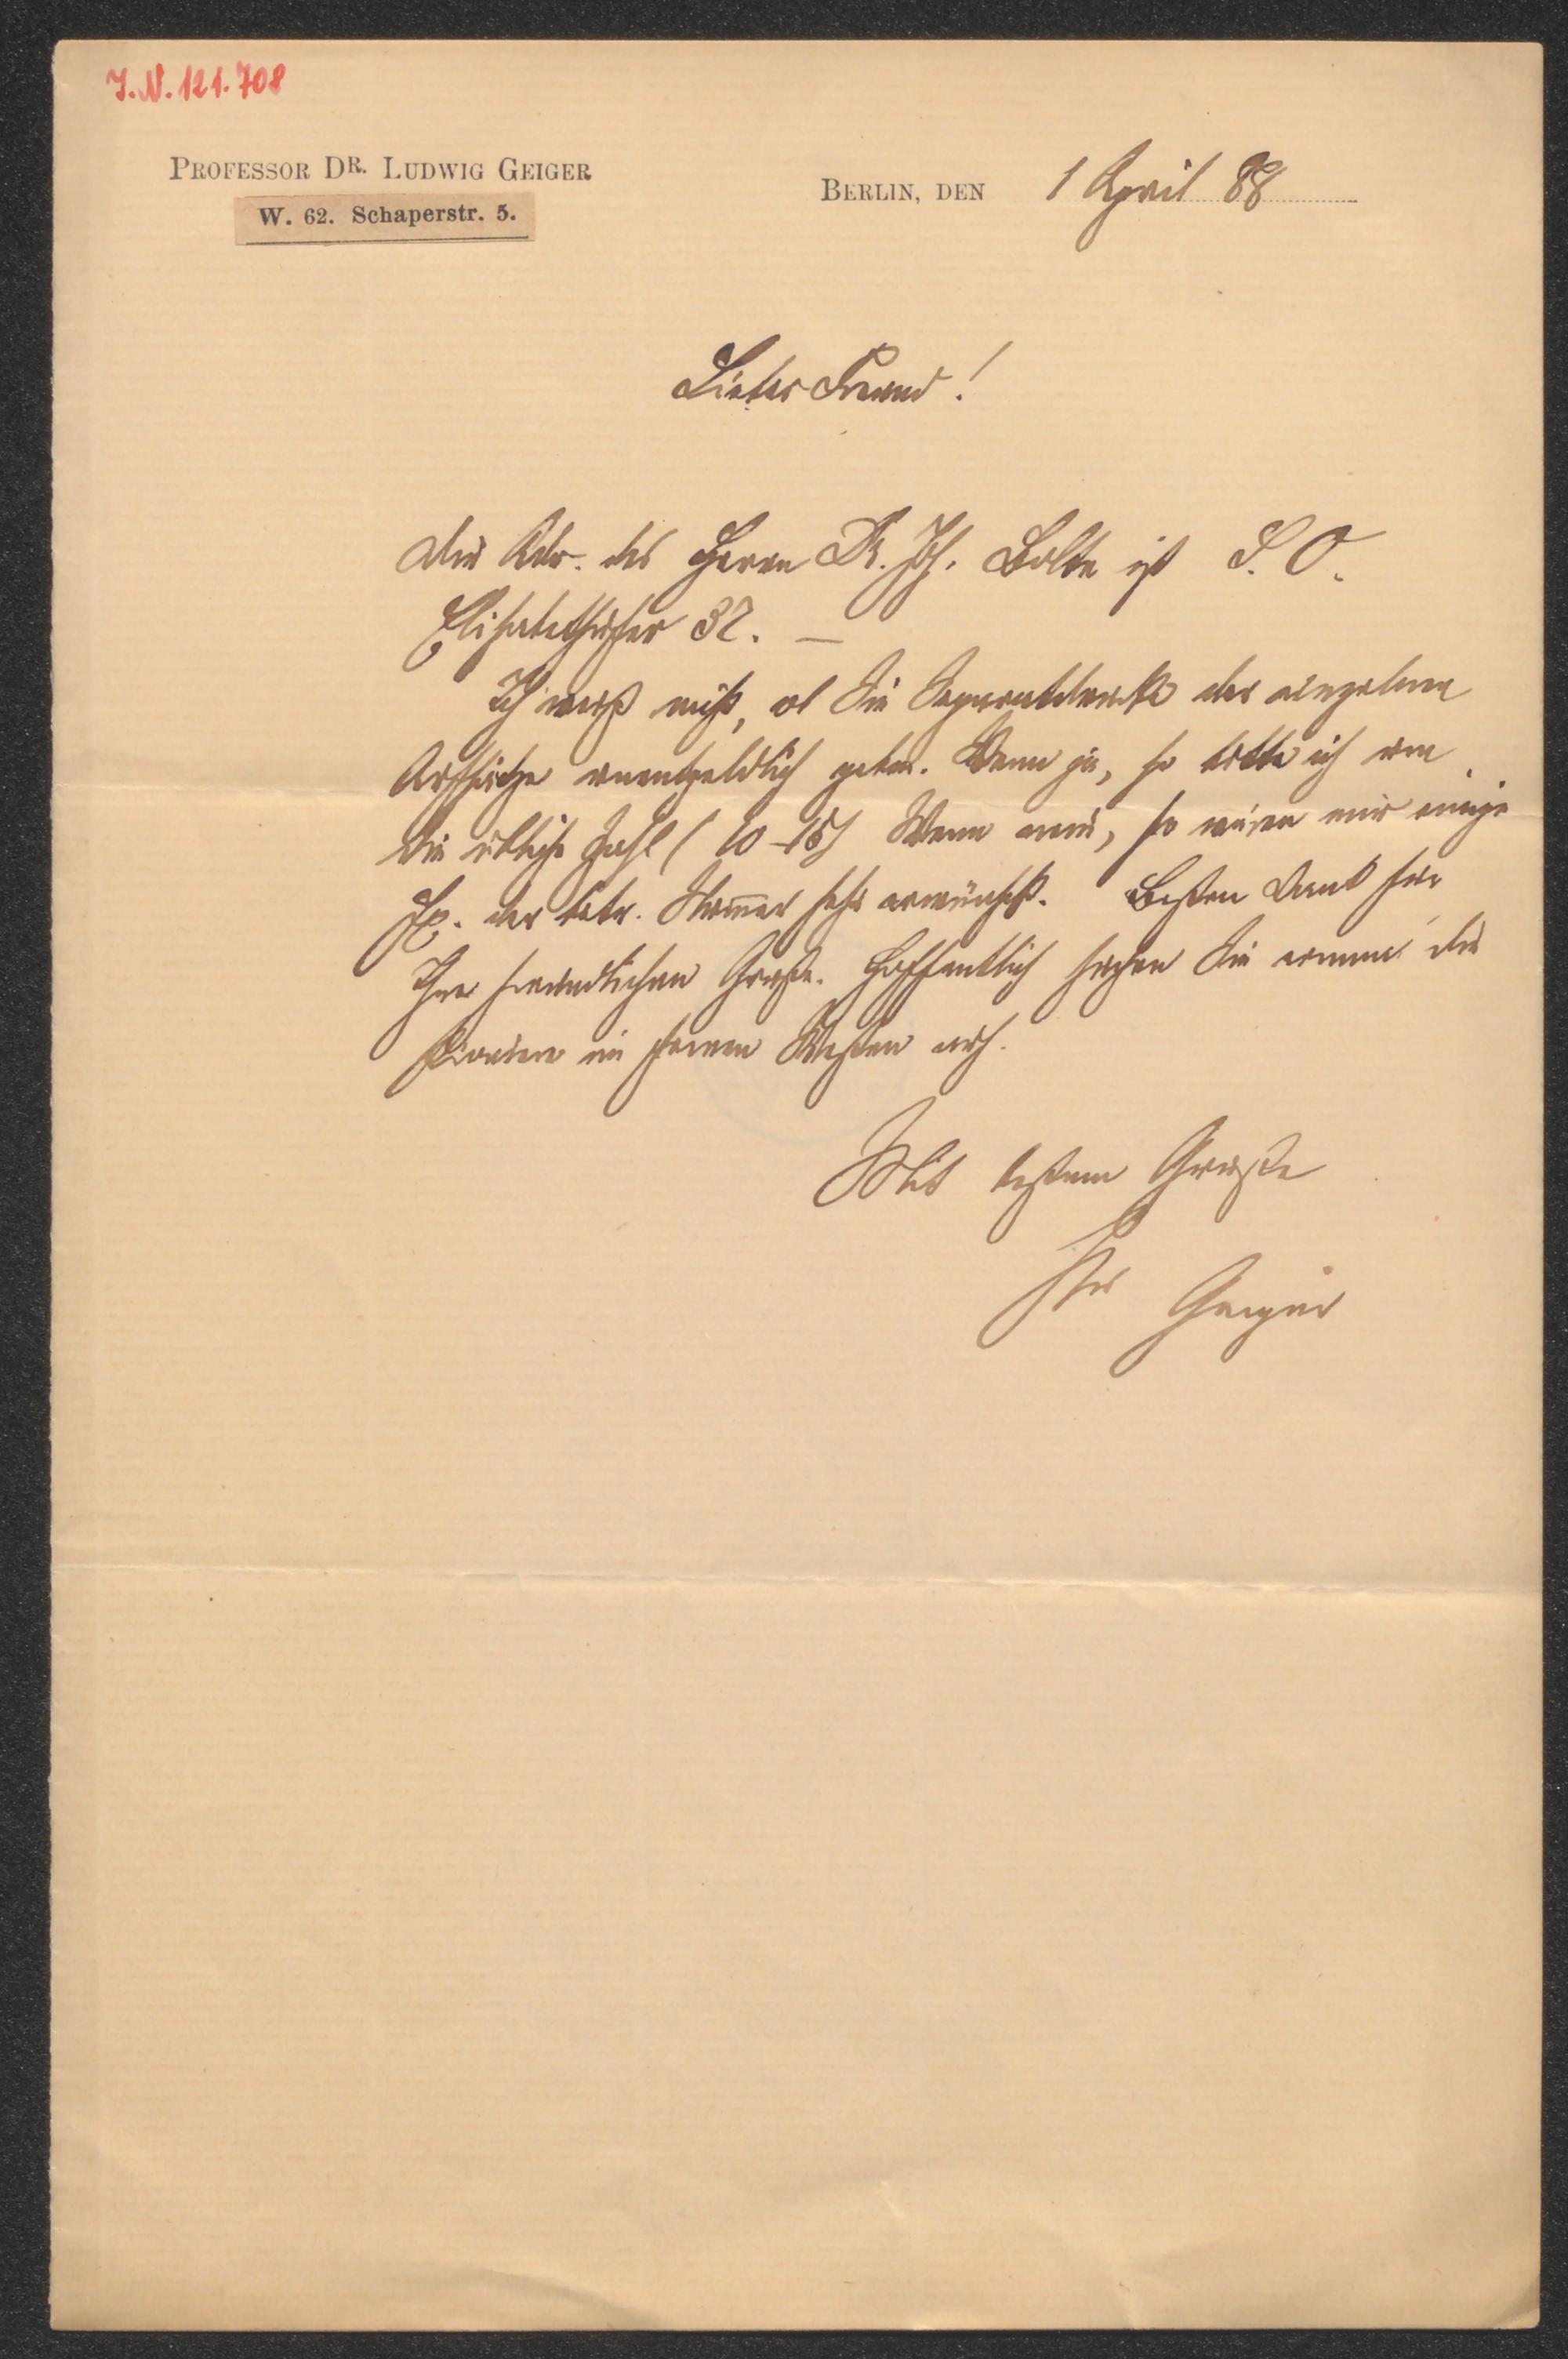 J.N. 121.708
PROFESSOR DR. LUDWIG GEIGER
W. 62. Schaperstr. 5.
BERLIN, DEN 1 April 88
Lieber Freund!
die Adr. des Herrn Dr. Joh. Bolte ist S. O.
Elisabethufer 37. —
Ich weiß nicht, ob Sie Separatabdrücke der einzelnen
Aufsätze unentgeldlich geben. Wenn ja, so bitte ich um
die übliche Zahl (10–15) Wenn nein, so wären mir einige
Ex. der betr. Nummer sehr erwünscht. Besten Dank für
Ihre freundlichen Grüße. Hoffentlich suchen Sie einmal die
im fernen Westen auf.
Mit bestem Gruße
Ihr Geiger